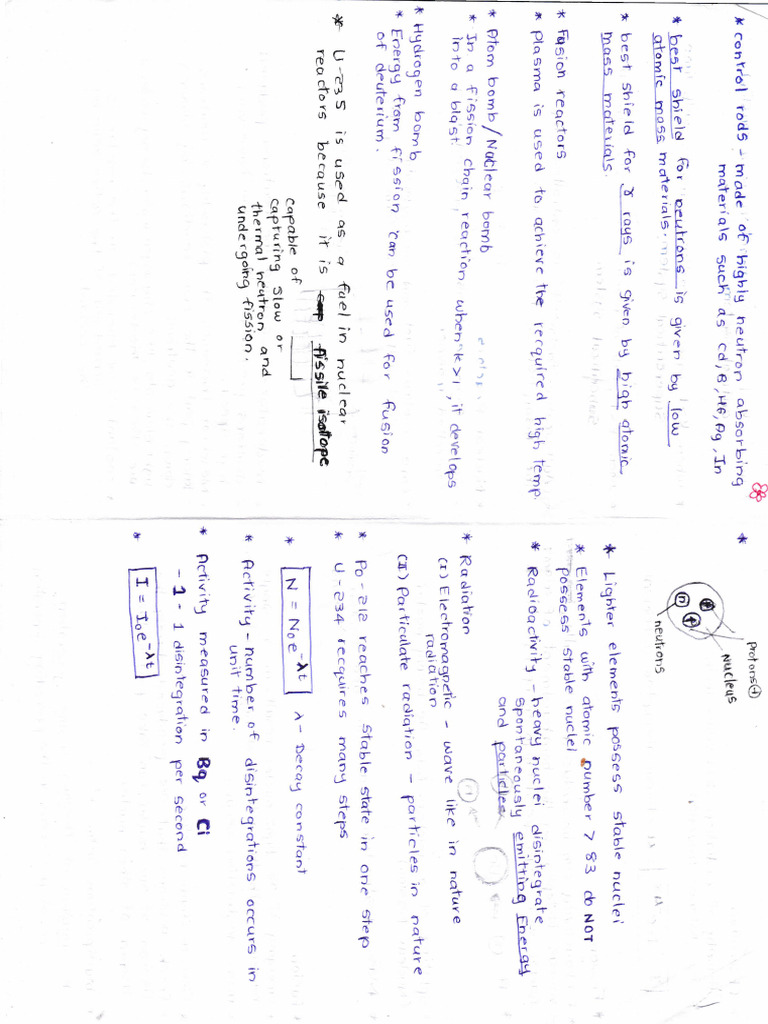 * control rods - made of highly neutron absorbing
materials such as cd, B, Hf, Ag, In
* best shield for neutrons is given by low
atomic mass materials.
* best shield for γ rays is given by high atomic
mass materials.
* Fusion reactors
* Plasma is used to achieve the recquired high temp.
* Atom bomb/Nuclear bomb
* In a fission chain reaction when k>1, it develops
into a blast.
* Hydrogen bomb
* Energy from fission can be used for fusion
of deuterium.
* U-235 is used as a fuel in nuclear
reactors because it is fissile isotope
capable of
capturing slow or
thermal neutron and
undergoing fission.
*
protons(+)
nucleus
n
neutrons
* Lighter elements possess stable nuclei
* Elements with atomic number > 83 do NOT
possess stable nuclei
* Radioactivity - heavy nuclei disintegrate
spontaneously emitting Energy
and particles
* Radiation
(I) Electromagnetic - wave like in nature
radiation
(II) Particulate radiation - particles in nature
* Po-212 reaches stable state in one step
* U-234 recquires many steps
* N = N₀e^-λt λ - Decay constant
* Activity - number of disintegrations occurs in
unit time.
* Activity measured in Bq or Ci
- 1 - 1 disintegration per second
* I = I₀e^-λt